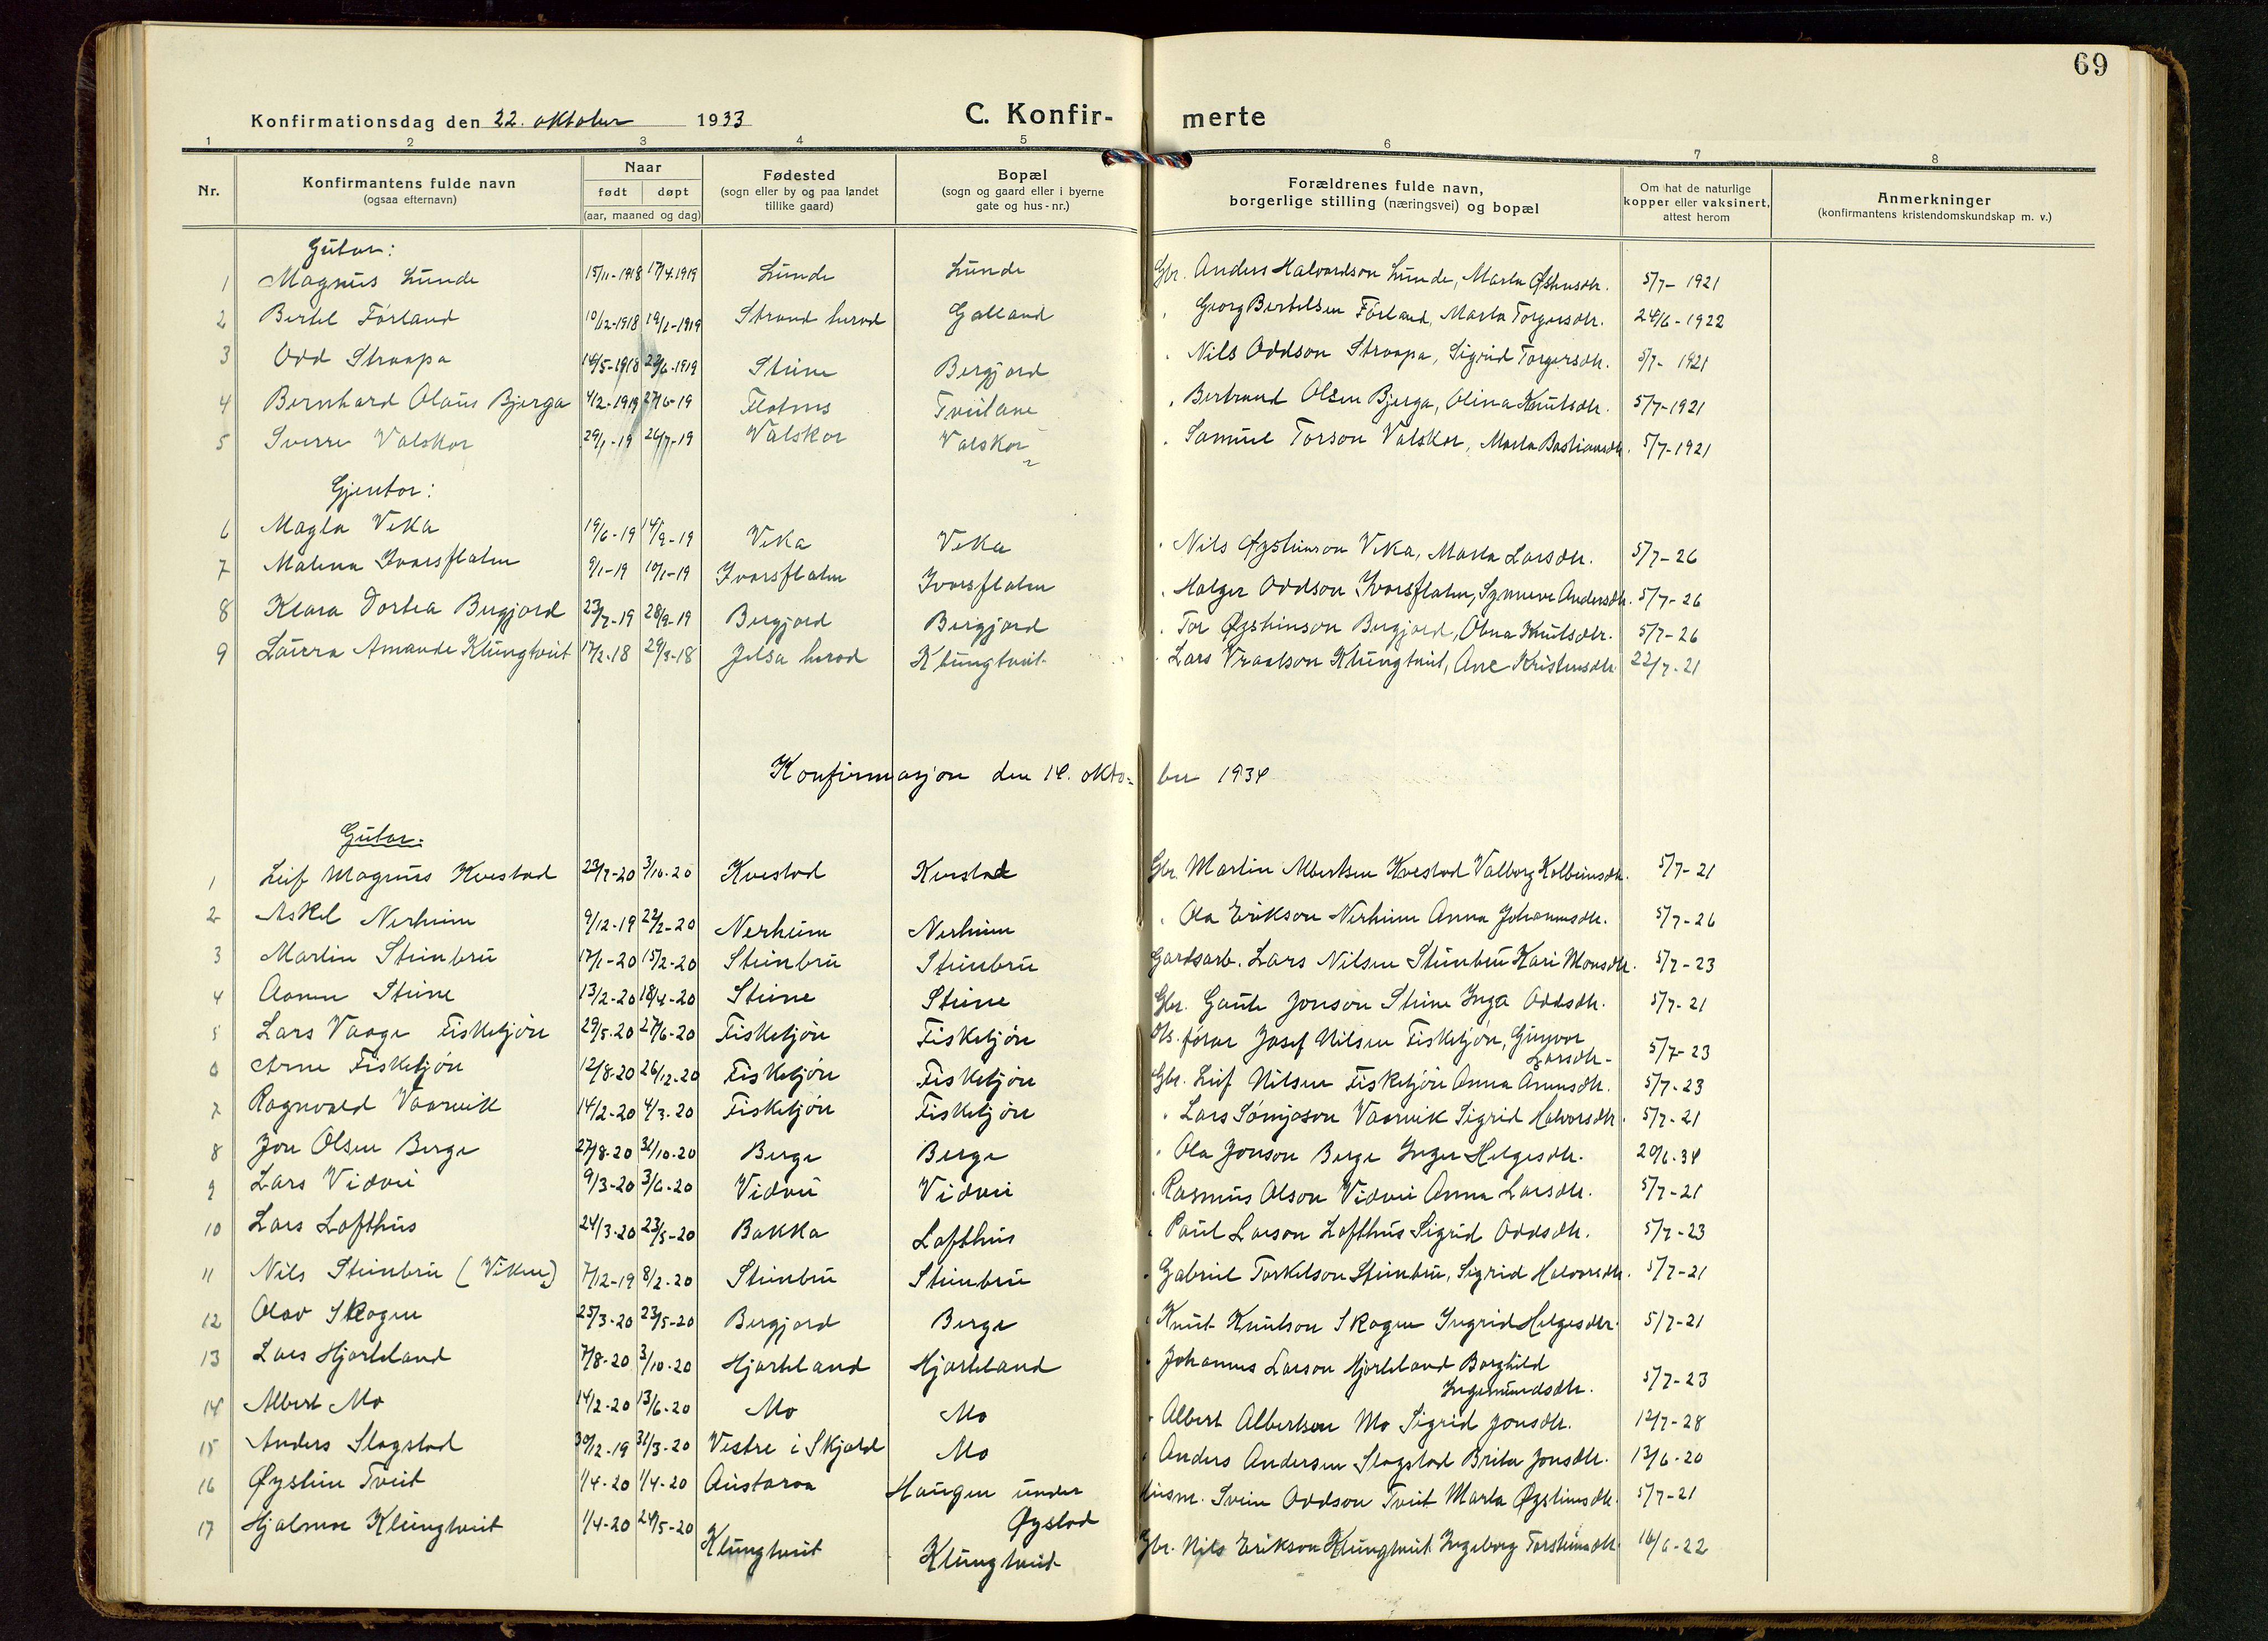 69
Konfirmationsdag den 22. oktober 1933 C. Konfir- merte
1 2 3 4 5 6 7 8
Nr. Konfirmantens fulde navn (ogsaa efternavn) Naar født døpt (aar, maaned og dag) Fødested (sogn eller by og paa landet tillike gaard) Bopæl (sogn og gaard eller i byerne gate og hus-nr.) Forældrenes fulde navn, borgerlige stilling (næringsvei) og bopæl Om hat de naturlige kopper eller vaksinert, attest herom Anmerkninger (konfirmantens kristendomskundskap m. v.)
Gutar:
1 Magnus Lunde 15/11-1918 17/4 1919 Lunde Lunde Gbr. Anders Halvardson Lunde, Marta Østensdtr. 5/7-1921
2 Bertel Førland 10/12-1918 19/1-1919 Strand herad Galland Georg Bertelsen Førland, Marta Torgersdtr. 24/6-1922
3 Odd Straapa 14/5-1918 29/6-1919 Steine Bergjord Nils Oddson Straapa, Sigrid Torgersdtr. 5/7-1921
4 Bernhard Olaus Bjerga 4/2-1919 27/6-19 Flotnes Tveitane Bertrand Olsen Bjerga, Olina Knutsdtr. 5/7-1921
5 Sverre Valskor 29/1-19 26/7-19 Valskor Valskor Samuel Torson Valskor, Marta Bastiansdtr. 5/7-1921
Gjentor:
6 Magla Veka 19/6-19 14/9-19 Veka Veka Nils Øysteinson Veka, Marta Larsdtr. 5/7-26
7 Malena Ivarsflaten 9/1-19 10/1-19 Ivarsflaten Ivarsflaten Holger Oddson Ivarsflaten, Synneve Andersdtr. 5/7-26
8 Klara Dortea Bergjord 23/7-19 28/9-19 Bergjord Bergjord Tor Øysteinson Bergjord, Olena Knutsdtr. 5/7-26
9 Laura Amanda Klungtveit 17/2-18 29/3-18 Jelsa herad Klungtveit Lars Vraalson Klungtveit, Ane Kristensdtr. 22/7-21
Konfirmasjon den 14. oktober 1934
Gutar:
1 Leif Magnus Kvestad 23/7-20 3/10-20 Kvestad Kvestad Gbr. Martin Albertsen Kvestad Valborg Kolbeinsdtr. 5/7-21
2 Askel Nerheim 9/12-19 22/2-20 Nerheim Nerheim Ola Erikson Nerheim Anna Johannesdtr. 5/7-26
3 Martin Steinbru 17/1-20 15/2-20 Steinbru Steinbru Gardsarb. Lars Nilsen Steinbru Kari Monsdtr. 5/7-23
4 Aamen Steine 13/2-20 18/4-20 Steine Steine Gbr. Gaute Jonson Steine Inga Oddsdtr. 5/7-21
5 Lars Vaage Fisketjøn 29/5-20 27/6-20 Fisketjøn Fisketjøn førar Josef Nilsen Fisketjøn, Gunvor Larsdtr. 5/7-23
6 Arne Fisketjøn 12/8-20 26/12-20 Fisketjøn Fisketjøn Gbr. Leif Nilsen Fisketjøn Anna Aamundsdtr. 5/7-23
7 Ragnvald Vaarvik 14/2-20 4/3-20 Fisketjøn Fisketjøn Lars Sømjason Vaarvik Sigrid Halvorsdtr. 5/7-21
8 Jon Olsen Berge 27/8-20 31/10-20 Berge Berge Ola Jonson Berge Inger Helgesdtr. 20/6-34
9 Lars Vidvei 9/3-20 3/6-20 Vidvei Vidvei Rasmus Olson Vidvei Anna Larsdtr. 5/7-21
10 Lars Lofthus 24/3-20 23/5-20 Bakka Lofthus Paul Larson Lofthus Sigrid Oddsdtr. 5/7-23
11 Nils Steinbru (Viken) 7/12-19 8/2-20 Steinbru Steinbru Gabriel Torkelson Steinbru, Sigrid Halvorsdtr. 5/7-21
12 Olav Skogen 25/3-20 23/5-20 Bergjord Berge Knut Knutson Skogen Ingrid Helgesdtr. 5/7-21
13 Lars Hjorteland 7/8-20 3/10-20 Hjorteland Hjorteland Johannes Larson Hjorteland Borghild Ingemundsdtr. 5/7-23
14 Albert Mo 14/2-20 13/6-20 Mo Mo Albert Albertsen Mo Sigrid Jonsdtr. 12/7-28
15 Anders Slogstad 30/12-19 31/3-20 Vestre i Skjold Mo Anders Andersen Slogstad Brita Jonsdtr. 13/6-20
16 Øystein Tveit 1/4-20 1/4-20 Austaraa Haugen under Øystad Husm. Svein Oddson Tveit Marta Øysteinsdtr. 5/7-21
17 Hjalmar Klungtveit 1/4-20 24/5-20 Klungtveit Klungtveit Gbr. Nils Erikson Klungtveit Ingeborg Torsteinsdtr. 16/6-22